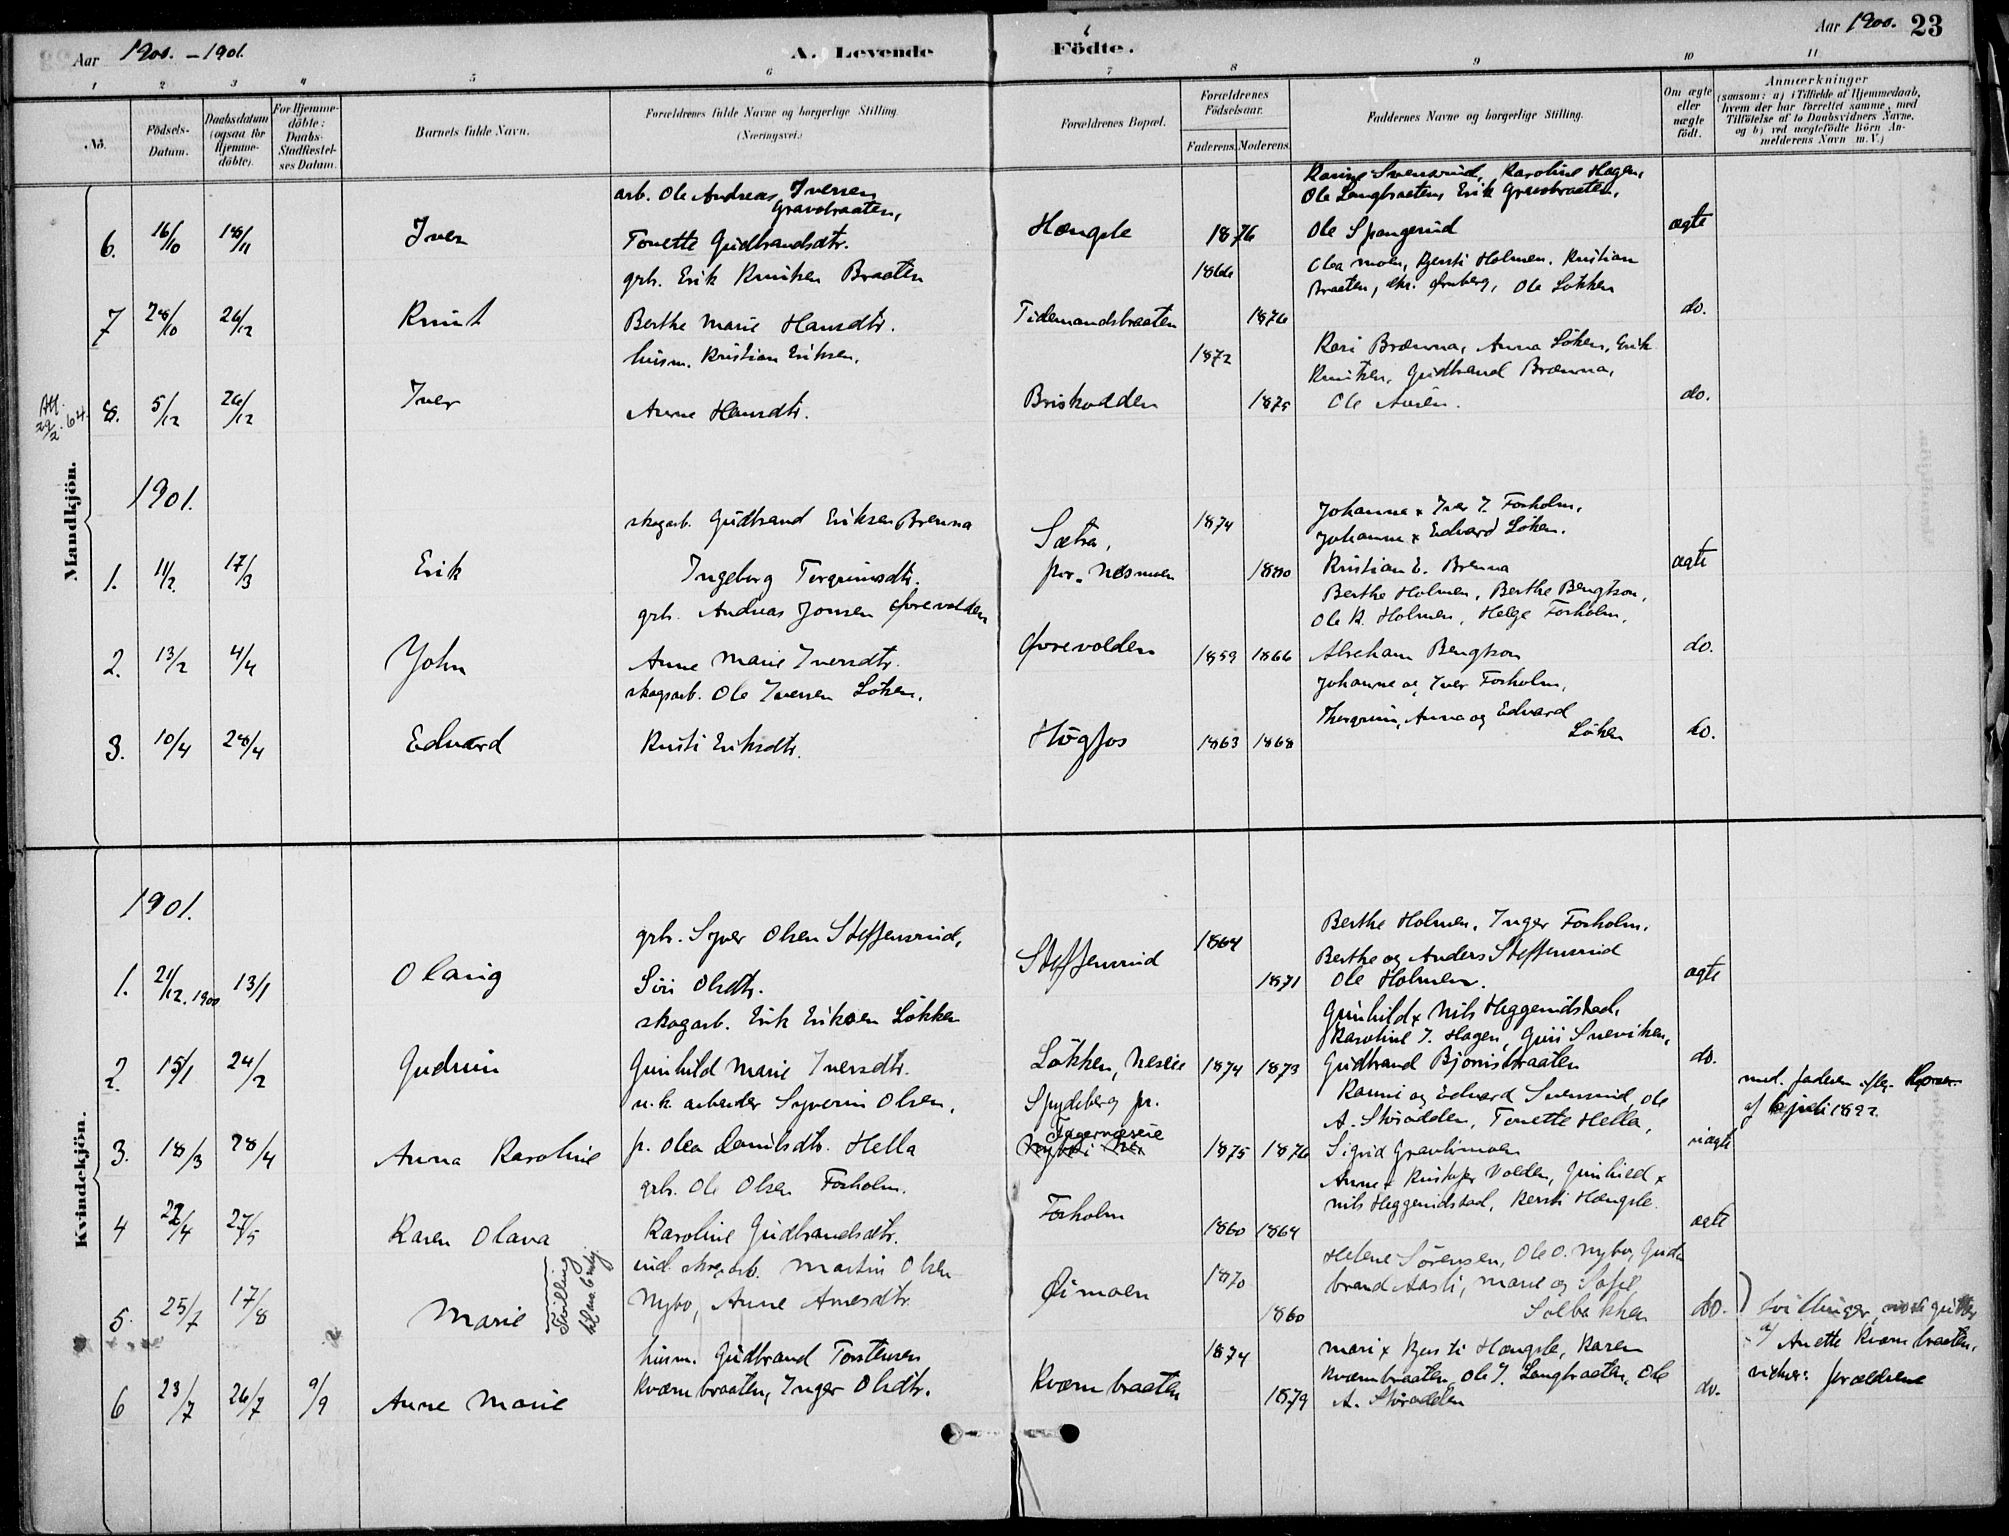 Aar 1900. - 1901.
A. Levende Födte.
Aar 1900. 23
1 2 3 4 5 6 7 8 9 10 11
No.
Födsels-Datum.
Daabsdatum (ogsaa for Hjemme-döbte).
For Hjemme-döbte: Daabs-Stadfæstel-ses Datum.
Barnets fulde Navn.
Forældrenes fulde Navne og borgerlige Stilling. (Næringsvei.)
Forældrenes Bopæl.
Forældrenes Födselsaar.
Faderens. Moderens.
Faddernes Navne og borgerlige Stilling.
Om ægte eller uægte födt.
Anmærkninger
(saasom: a) i Tilfælde af Hjemmedaab, hvem der har forrettet samme, med Tilföielse af to Daabsvidners Navne, og b) ved uægtefödte Börn Anmelderens Navn m. V.)
Mandkjön.
arb. Ole Andreas Iversen
Gravbraaten,
Karine Svensrud, Karoline Hagen,
Ole Langbraaten, Erik Gravbraaten,
6. 16/10 18/11 Iver Tonette Gudbrandsdtr. Hængsle 1876 Ole Spangerud ægte
grb. Erik Knutsen Braaten 1866 Olea Moen, Kjersti Holmen, Kristian
Braaten, Ole Løkken
7 28/10 26/12 Knut Berthe Marie Hansdtr. Tidemandsbraaten 1876 do.
husm. Kristian Eriksen, 1872 Kari Brænna, Anna Løken, Erik
Knutsen, Gudbrand Brænna,
29/2.64. 8. 5/12 26/12 Iver Anne Hansdtr. Briskodden 1875 Ole Aasen. do.
1901.
skogarb. Gudbrand Eriksen Brenna Sætra, 1874 Johanne x Iver I. Forholm,
Johanne x Edvard Løken.
1. 11/2. 17/3 Erik Ingeborg Torgrimsdtr. per. Nesmoen 1880 Kristian E. Brenna ægte
grb. Andreas Jonsen Øvrevolden Berthe Holmen, Berthe Bengtson,
Ole K. Holmen, Helge Forholm,
2. 13/2 4/4 John Anne Marie Iversdtr. Øvrevolden 1859 1866 Abraham Bengtson do.
skogsarb. Ole Iversen Løken, Johanne og Iver Forholm,
Thorgrim, Anna og Edvard
3. 10/4 28/4 Edvard Kristi Eriksdtr. Høgfos 1863 1868 Løken do.
Kvindekjön.
1901.
grb. Syver Olsen Steffensrud, 1864 Berthe Holmen, Inger Forholm,
Steffensrud Berthe og Anders Steffensrud
1. 21/12. 1900 13/1 Olaug Siri Olsdtr. 1871 Ole Holmen. ægte
skogarb. Erik Eriksen Løkken Gunhild x Nils Heggenidstad,
Karoline I. Hagen, Guri Sneviken,
2. 15/1 24/2 Gudrun Gunhild Marie Iversdtr. Løkken, Neseie 1874 1873 Gudbrand Bjørnsbraaten do.
u.k. arbeider Syverin Olsen, Spydeberg pr. Edvard Svensrud, Ole
A. Storødden, Tonette Hella,
3. 18/3 28/4 Anna Karoline p. Olea Hella 1875 1876 Sigrid Gravlimoen uægte
af 6 juli 1892
grb. Ole Olsen Forholm. Anne x Kristofer Volden, Gunhild x
Nils Heggenidstad, Kersti Hængsle.
4 22/4 27/5 Karen Olava Karoline Gudbrandsdtr. Forholm 1860 1864 ægte
Martin Olsen 1870 Helene Sørensen, Ole O. Nybo, Gud-
brand Aasli, Marie og Sofie
5. 25/7 17/8 Marie Tvilling Nybo, Anne Arnesdtr. Øimoen 1860 Solbakken do.
husm. Gudbrand Torstensen 1874 Mari x Kjersti Hængsle, Karen
af Anette Kvernbraaten,
6 23/7 26/7 9/9 Anne Marie Kværnbraaten, Inger Olsdtr. Kværnbraaten 1879 Kværnbraaten, Ole I. Langbraaten, Ole
A. Storødden do.
vidner: forældrene